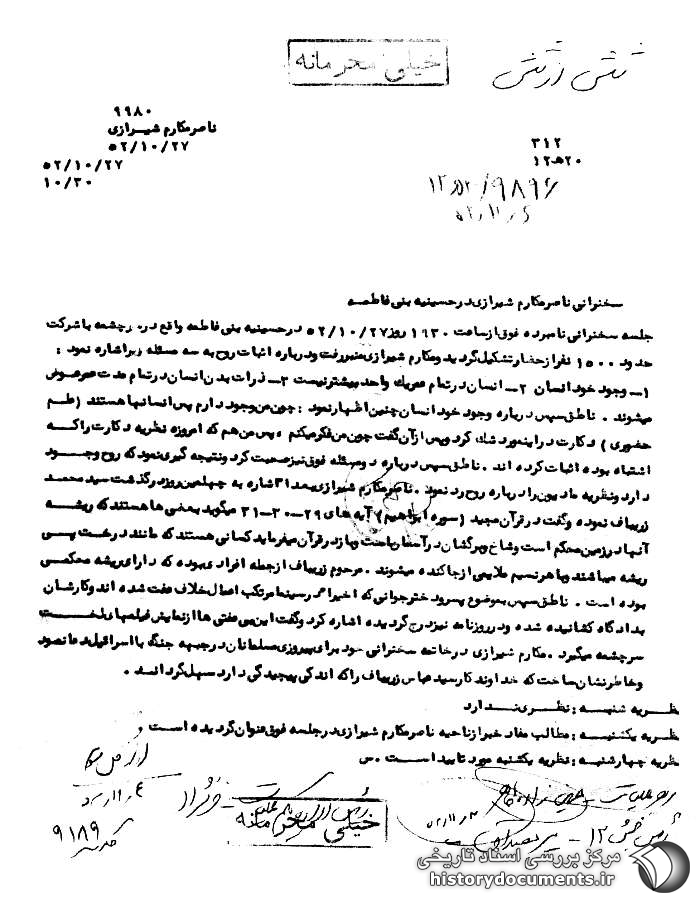 خیلی محرمانه
۹۹۸۰
ناصر مکارم شیرازی
۵۲/۱۰/۲۷
۵۲/۱۰/۲۷
۱۰/۳۰
۳۱۲
۲۰هـ۱۲
سخنرانی ناصر مکارم شیرازی در حسینیه بنی فاطمه
جلسه سخنرانی نامبرده فوق از ساعت ۱۹۳۰ روز ۵۲/۱۰/۲۷ در حسینیه بنی فاطمه واقع در سرچشمه با شرکت
حدود ۱۵۰۰ نفر از حضار تشکیل گردید و مکارم شیرازی منبر رفت و درباره اثبات روح به سه مسئله زیر اشاره نمود :
۱ـ وجود خود انسان ۲ـ انسان در تمام عمر یک واحد بیشتر نیست ۳ـ ذرات بدن انسان در تمام مدت عمر عوض
میشوند . ناطق سپس درباره وجود خود انسان چنین اظهار نمود : چون من وجود دارم پس انسانها هستند ( علم
حضوری ) دکارت در اینمورد شک کرد و پس از آن گفت چون من فکر میکنم ، پس من هم که امروزه نظریه دکارت را که
اشتباه بوده اثبات کرده اند . ناطق سپس درباره دو مسئله فوق نیز صحبت کرد و نتیجه گیری نمود که روح وجود
دارد و نظریه مادیون را درباره روح رد نمود . ناصر مکارم شیرازی بعدا اشاره به چهلمین روز درگذشت سید محمد
زریباف نموده و گفت در قرآن مجید ( سوره ابراهیم ) آیه های ۲۹ـ۳۰ـ۳۱ میگوید بعضی ها هستند که ریشه
آنها در زمین محکم است و شاخ و برگشان در آسمان است و باز در قرآن میفرماید کسانی هستند که مانند درخت بی
ریشه میباشند و با هر نسیم ملایمی از جا کنده میشوند . مرحوم زریباف از جمله افرادی بوده که دارای ریشه محکمی
بوده است . ناطق سپس بموضوع پسر و دختر جوانی که اخیرا در سینما مرتکب اعمال خلاف عفت شده اند و کارشان
بدادگاه کشانیده شده و در روزنامه نیز درج گردیده اشاره کرد و گفت این بی عفتی ها از نمایش فیلمهای لخت
سرچشمه میگیرد . مکارم شیرازی در خاتمه سخنرانی خود برای پیروزی مسلمانان در جبهه جنگ با اسرائیل دعا نمود
و خاطرنشان ساخت که خداوند کار سید عباس زریباف را که اندکی پیچیدگی دارد سهل گرداند .
نظریه شنبه : نظری ندارد
نظریه یکشنبه : مطالب مفاد خبر از ناحیه ناصر مکارم شیرازی در جلسه فوق عنوان گردیده است و
نظریه چهارشنبه : نظریه یکشنبه مورد تایید است . س
۹۱۸۹
خیلی محرمانه
مرکز بررسی اسناد تاریخی
historydocuments.ir